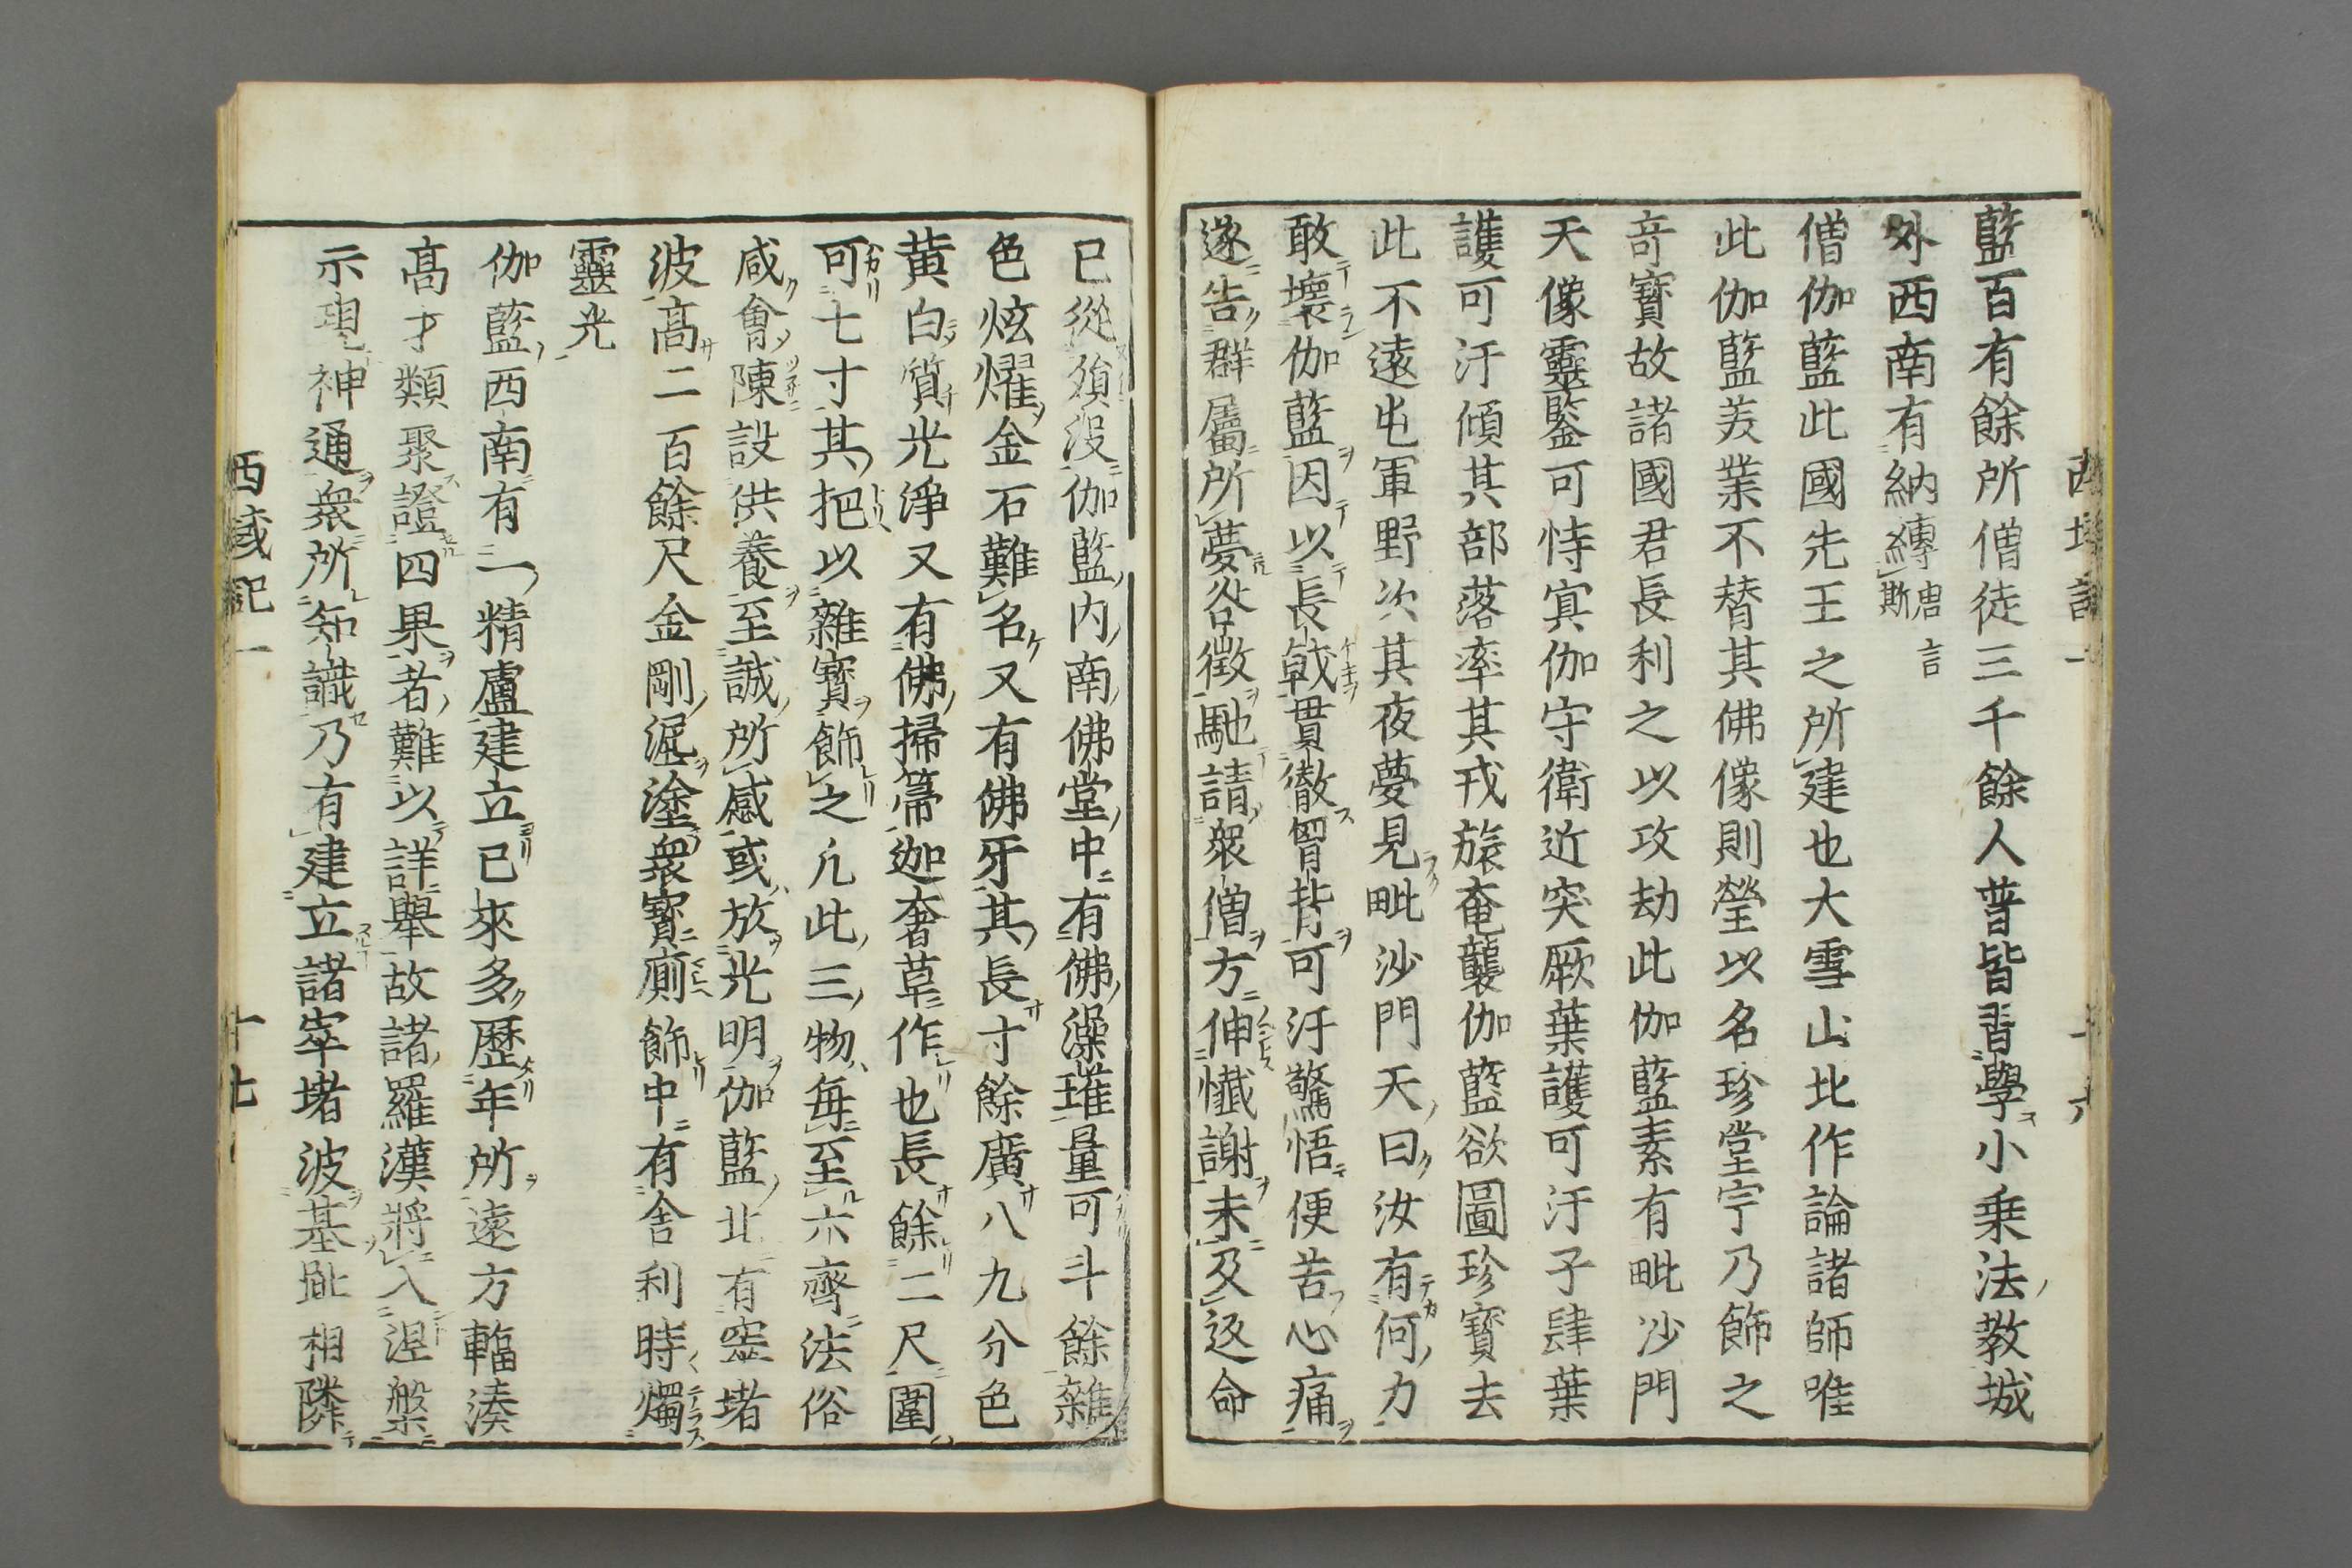 藍百有餘所僧徒三千餘人普皆習學小乗法教城
外西南有納縳唐言斯
僧伽藍此國先王之所建也大雪山北作論諸師唯
此伽藍羙業不替其佛像則瑩以名珍堂宇乃飾之
竒寶故諸國君長利之以攻劫此伽藍素有毗沙門
天像靈鑒可恃㝠伽守衛近突厥葉護可汙子肆葉
護可汙傾其部落率其戎旅奄襲伽藍欲圖珍寶去
此不遠屯軍野次其夜夢見毗沙門天曰汝有何力
敢壞伽藍因以長戟貫徹胷背可汙驚悟便苦心痛
遂告群屬所夢咎徴馳請衆僧方伸懺謝未及返命
已從殞没伽藍内南佛堂中有佛澡㩁量可斗餘雜
色炫燿金石難名又有佛牙其長寸餘廣八九分色
黄白質光淨又有佛掃箒迦奢草作也長餘二尺圍
可七寸其把以雜寶飾之凡此三物毎至六齋法俗
咸會陳設供養至誠所感或放光明伽藍北有窣堵
波高二百餘尺金剛泥塗衆寶廁飾中有舎利時燭
靈光
伽藍西南有一精盧建立已來多歷年所遠方輻湊
髙才類聚證四果者難以詳舉故諸羅漢將入涅槃
示現神通衆所知識乃有建立諸窣堵波基趾相隣
西域記一
十七